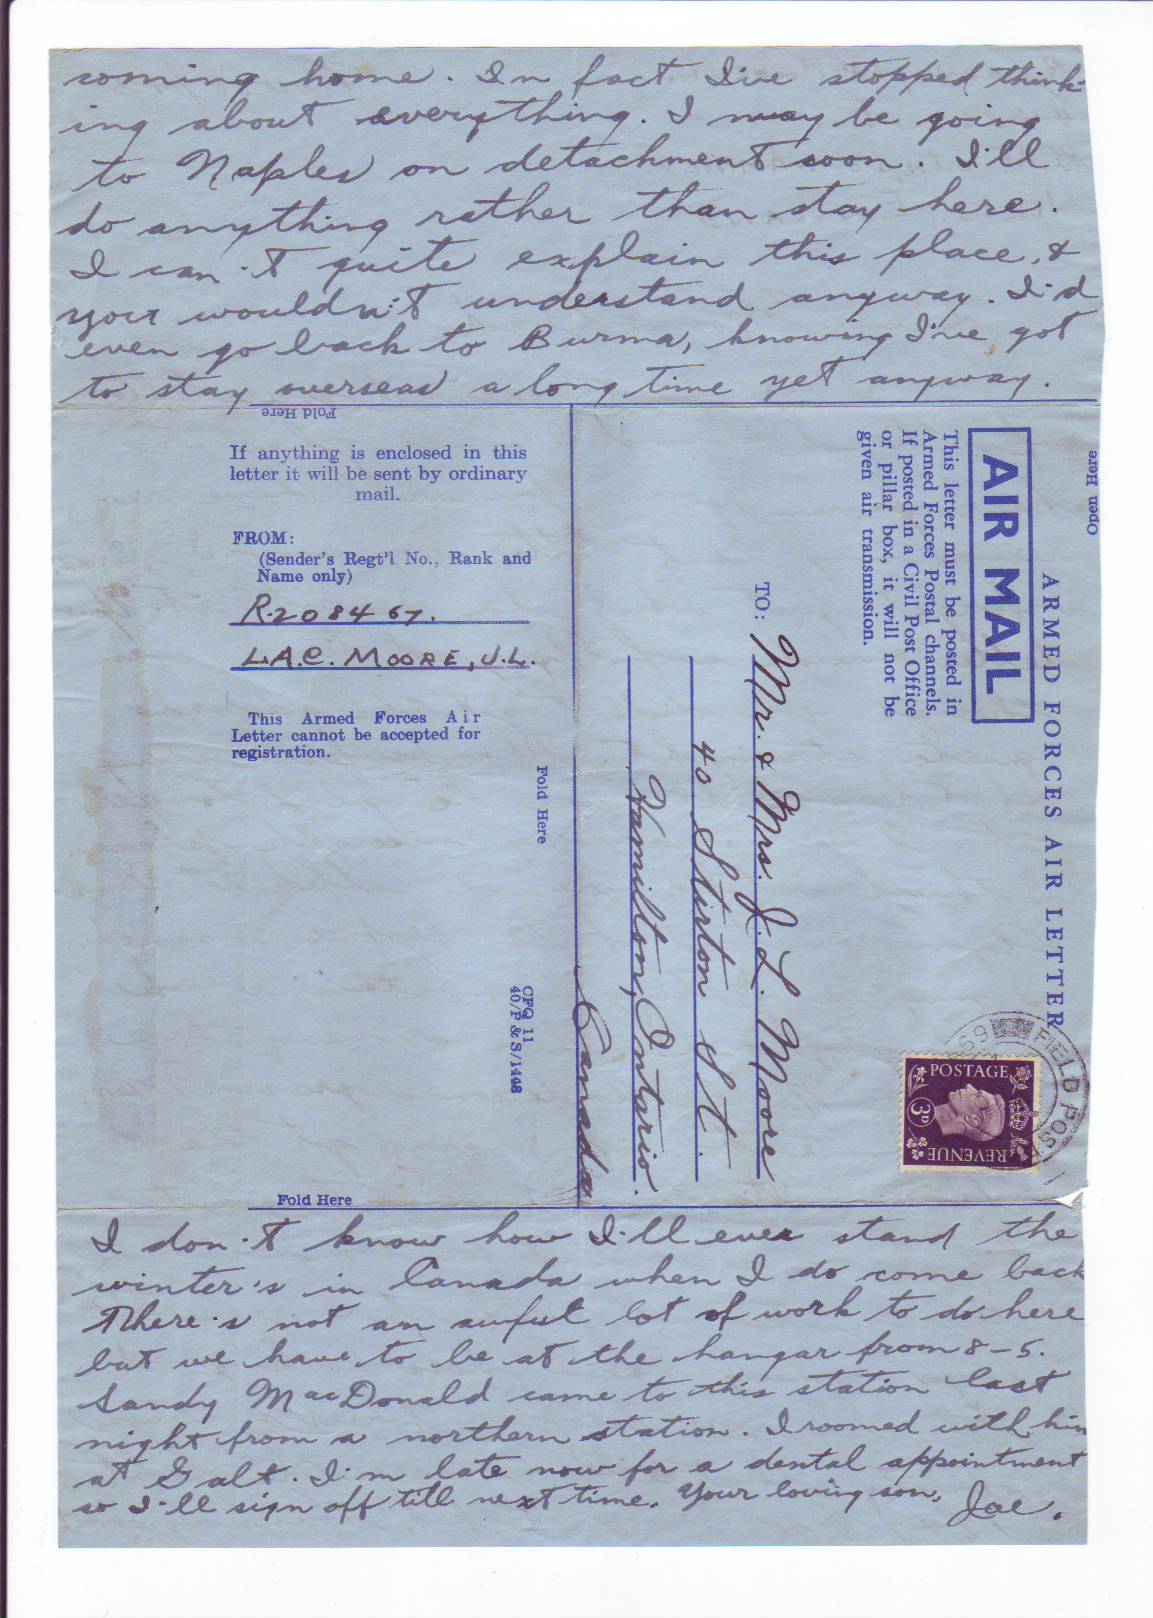 coming home. In fact I've stopped think-
ing about everything. I may be going
to Naples on detachment soon. I'll
do anything rather than stay here.
I can't quite explain this place, &
you wouldn't understand anyway. I'd
even go back to Burma, knowing I've got
to stay overseas a long time yet anyway.
Fold Here
If anything is enclosed in this
letter it will be sent by ordinary
mail.
FROM:
(Sender's Regt'l No., Rank and
Name only)
R.208467.
L.A.C. MOORE, J.L.
This Armed Forces Air
Letter cannot be accepted for
registration.
Fold Here
CFQ 11
40/P & S/1448
Open Here
ARMED FORCES AIR LETTER
AIR MAIL
This letter must be posted in
Armed Forces Postal channels.
If posted in a Civil Post Office
or pillar box, it will not be
given air transmission.
TO: Mr. & Mrs. J. L. Moore
40 Stirton St.
Hamilton, Ontario.
Canada
POSTAGE
3D
REVENUE
FIELD POST
Fold Here
I don't know how I'll ever stand the
winter's in Canada when I do come back
There's not an awful lot of work to do here
but we have to be at the hangar from 8-5.
Sandy MacDonald came to this station last
night from a northern station. I roomed with him
at Galt. I'm late now for a dental appointment
so I'll sign off till next time. Your loving son,
Joe.